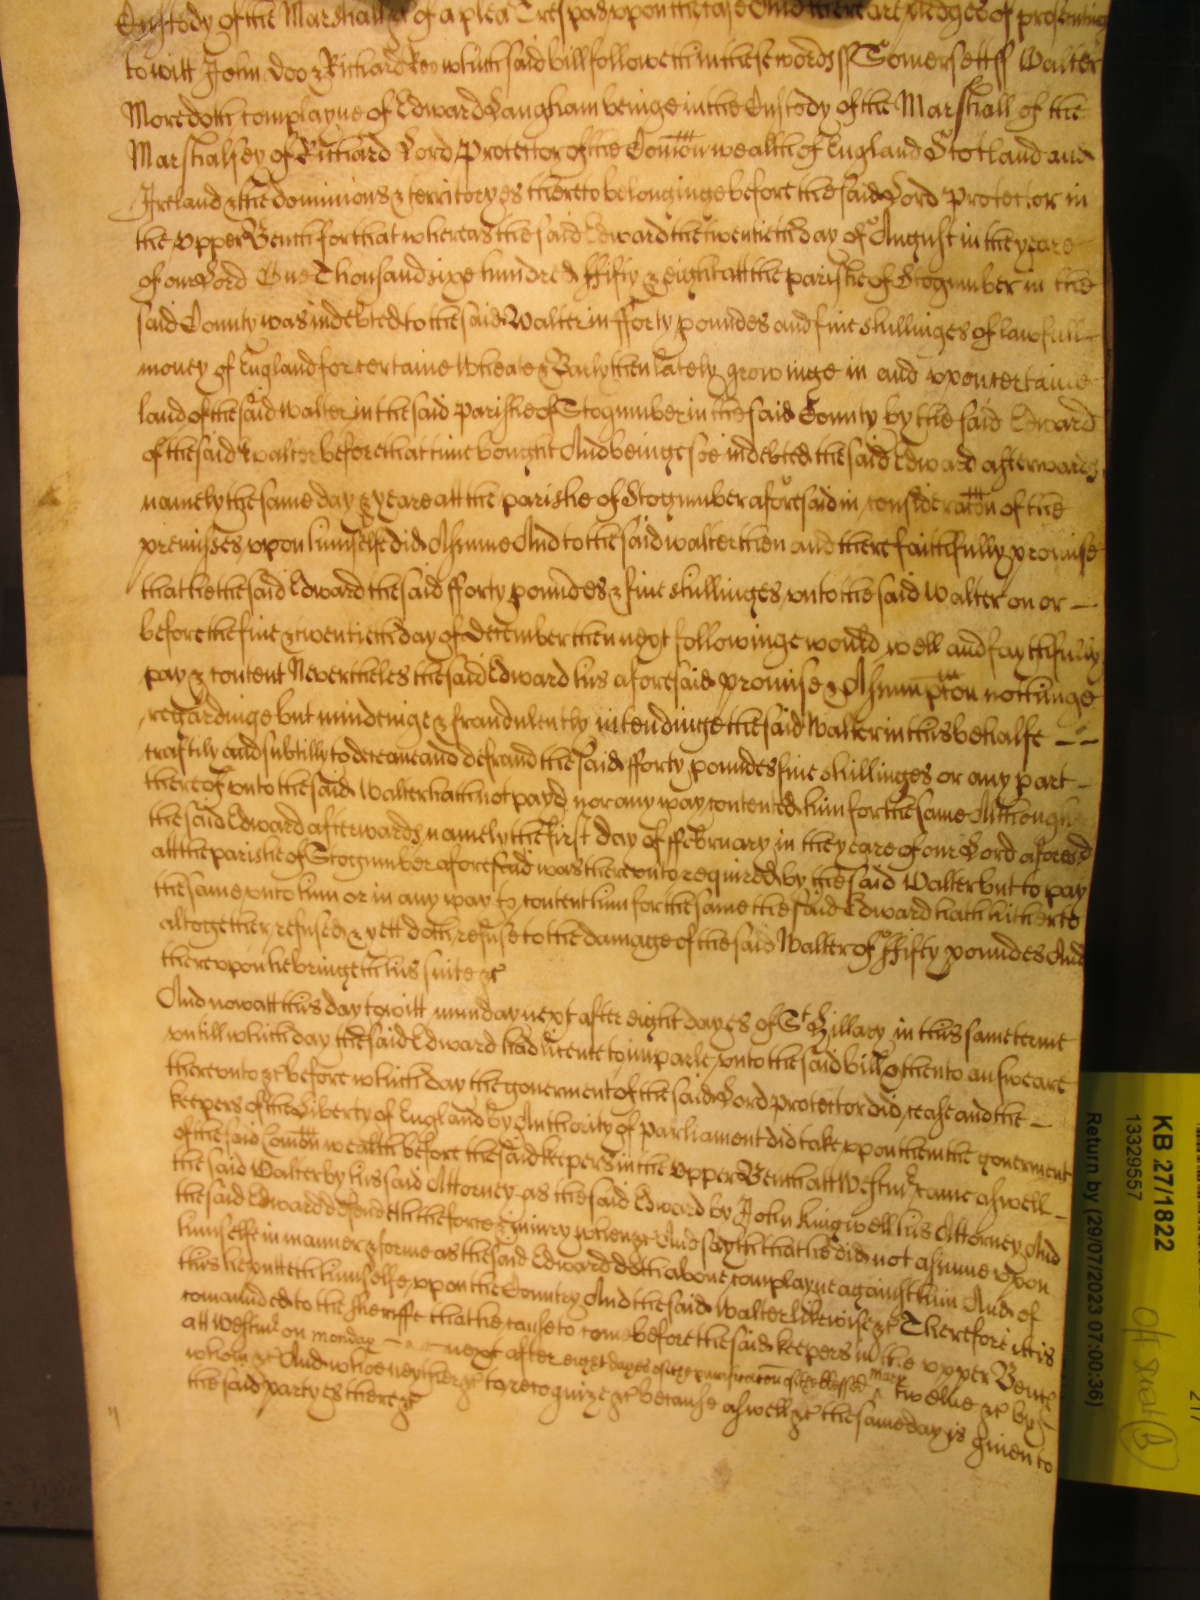 Custody of the Marshall &c of a plea Trespas uppon the case And there are pledges of prosecuting
to witt John Doo & Richard Roo which said bill followeth in these words ss Somersett ss Walter
More doth complayne of Edward Langham beinge in the Custody of the Marshall of the
Marshalsey of Richard Lord Protector of the Comon wealth of England Scotland and
Ireland & the dominions & territoryes thereto belonginge before the said Lord Protector in
the upper Bench for that whereas the said Edward the twentieth day of August in the yeare
of our Lord One Thousand sixe hundred ffifty & eight att the parishe of Stogumber in the
said County was indebted to the said Walter in fforty poundes and five shillinges of lawfull
money of England for certaine Wheate & Barly then lately growinge in and upon certaine
land of the said Walter in the said parishe of Stogumber in the said County by the said Edward
of the said Walter before that time bought And beinge soe indebted the said Edward afterwards
namely the same day & yeare att the parishe of Stogumber aforesaid in consideracon of the
premisses upon himselfe did Assume And to the said Walter then and there faithfully promise
that he the said Edward the said fforty poundes & five shillinges unto the said Walter on or
before the five & twentieth day of december then next followinge would well and faythfully
pay & content Neverthelés the said Edward his aforesaid promise & Assumpcon nothinge
regardinge but mindeinge & fraudulently intendinge the said Walter in this behalfe
craftily and subtilly to deceave and defraud the said fforty poundes five shillinges or any part
thereof unto the said Walter hath not payd nor any way contented him for the same Although
the said Edward afterwards namely the first day of ffebruary in the yeare of our Lord aforesd
att the parishe of Stogumber aforesaid was thereunto required by the said Walter but to pay
the same unto him or in any way to content him for the same the said Edward hath hitherto
altogether refused & yett doth refuse to the damage of the said Walter of ffifty poundes And
thereupon he bringeth his suite &c
And now att this day to witt munday next after eight dayes of St Hillary in this same terme
untill which day the said Edward had licence to imparle unto the said bill & then to answeare
thereunto &c before which day the goverment of the said Lord protector did cease and the
keepers of the Liberty of England by Authority of parliament did take upon them the goverment
of the said Comon wealth before the said keepers in the upper Bench att Westmr came aswell
the said Walter by his said Attorney as the said Edward by John Kingwell his Attorney And
the said Edward defendeth the force & iniury when &c And sayth that he did not assume upon
himselfe in manner & forme as the said Edward doth above complayne against him And of
this he putteth himselfe upon the Country And the said Walter likewise &c Therefore it is
comanded to the sheriffe that he cause to come before the said keepers in the upper Bench
att Westmr on monday next after eight dayes of the purification of the blessed Mary twelve &c by
whom &c And who neyther &c to recognize &c because aswell &c the same day is given to
the said partyes there &c
KB 27/1822
13329557
Return by (29/07/2023 07:00:36)